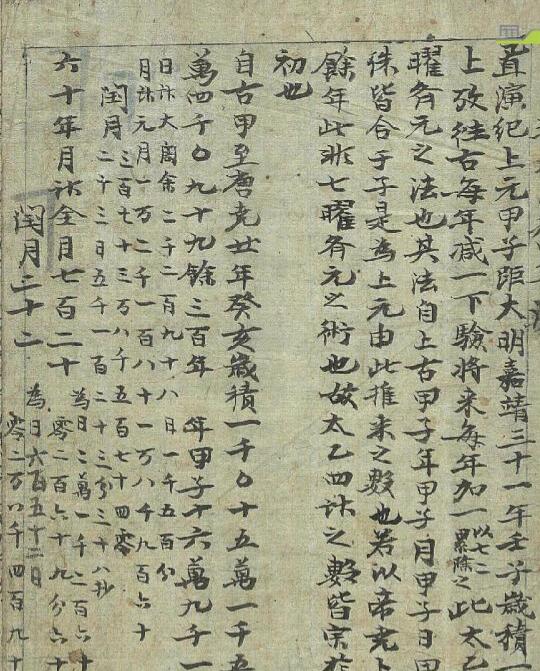 置演紀上元甲子距大明嘉靖三十一年壬子歲積一
上攷徃古每年减一下驗將来每年加一以七二累除之此太
曜齊元之法也其法自上古甲子年甲子月甲子日甲
殊皆合于子是為上元由此推来之数也若以帝堯上
餘年此非七曜齊元之術也故太乙四計之數皆宗於
初也
自古甲至唐堯廿年癸亥歲積一千〇十五萬一千五
萬四千〇九十九餘三百年 年甲子十六萬九千一
日計大周余二千二百九十八日一千五百分
月計元月一万二千一百八十一万八千九百六十
閏月二百七十三万八千五百七十四零
二十三日五千一百二十三分三十八抄
六十年月計全月七百二十 為日二萬一千二百六十
零二百六十九分六十
閏月二十二 為日六百五十二日
零二万八千四百九十